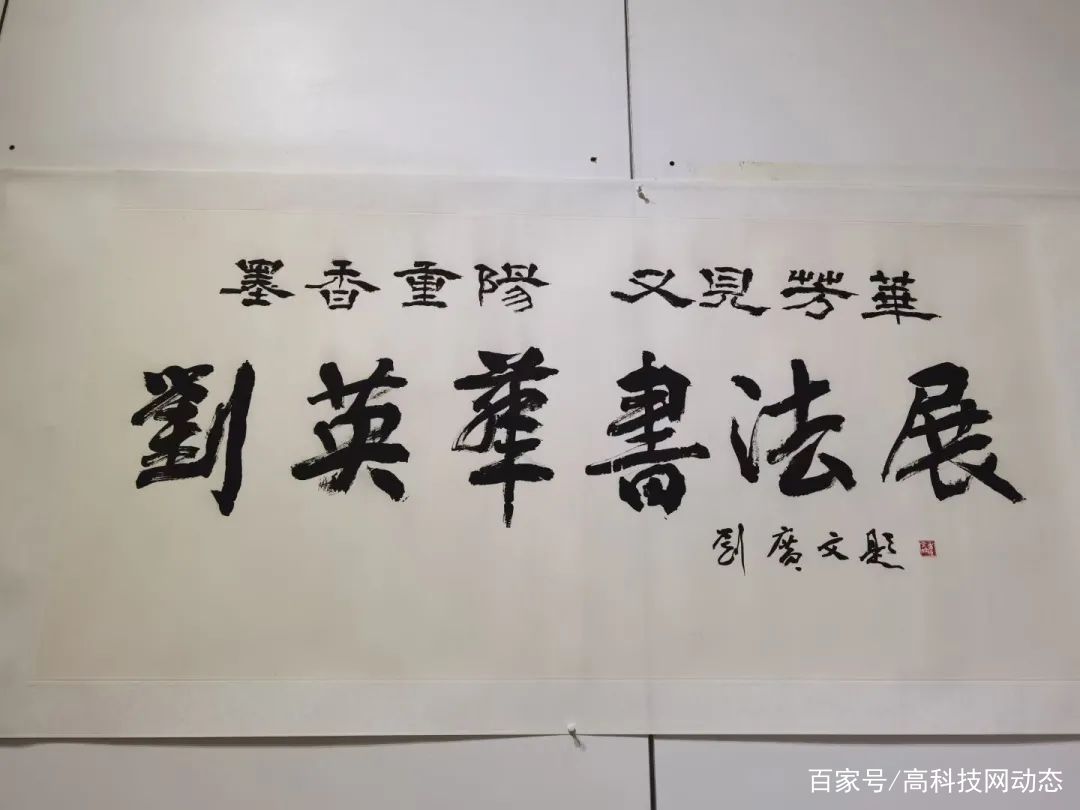 墨香重陽 又見芳華
劉英華書法展
劉廣文題
百家号/高科技网动态